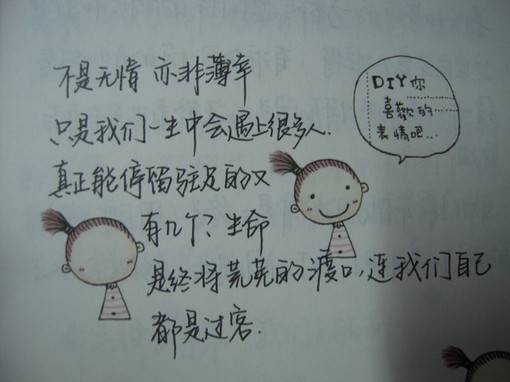 不是无情 亦非薄幸
只是我们一生中会遇上很多人.
真正能停留驻足的又
有几个？生命
是终将荒芜的渡口,连我们自己
都是过客.
DIY你
喜歡的
表情吧...